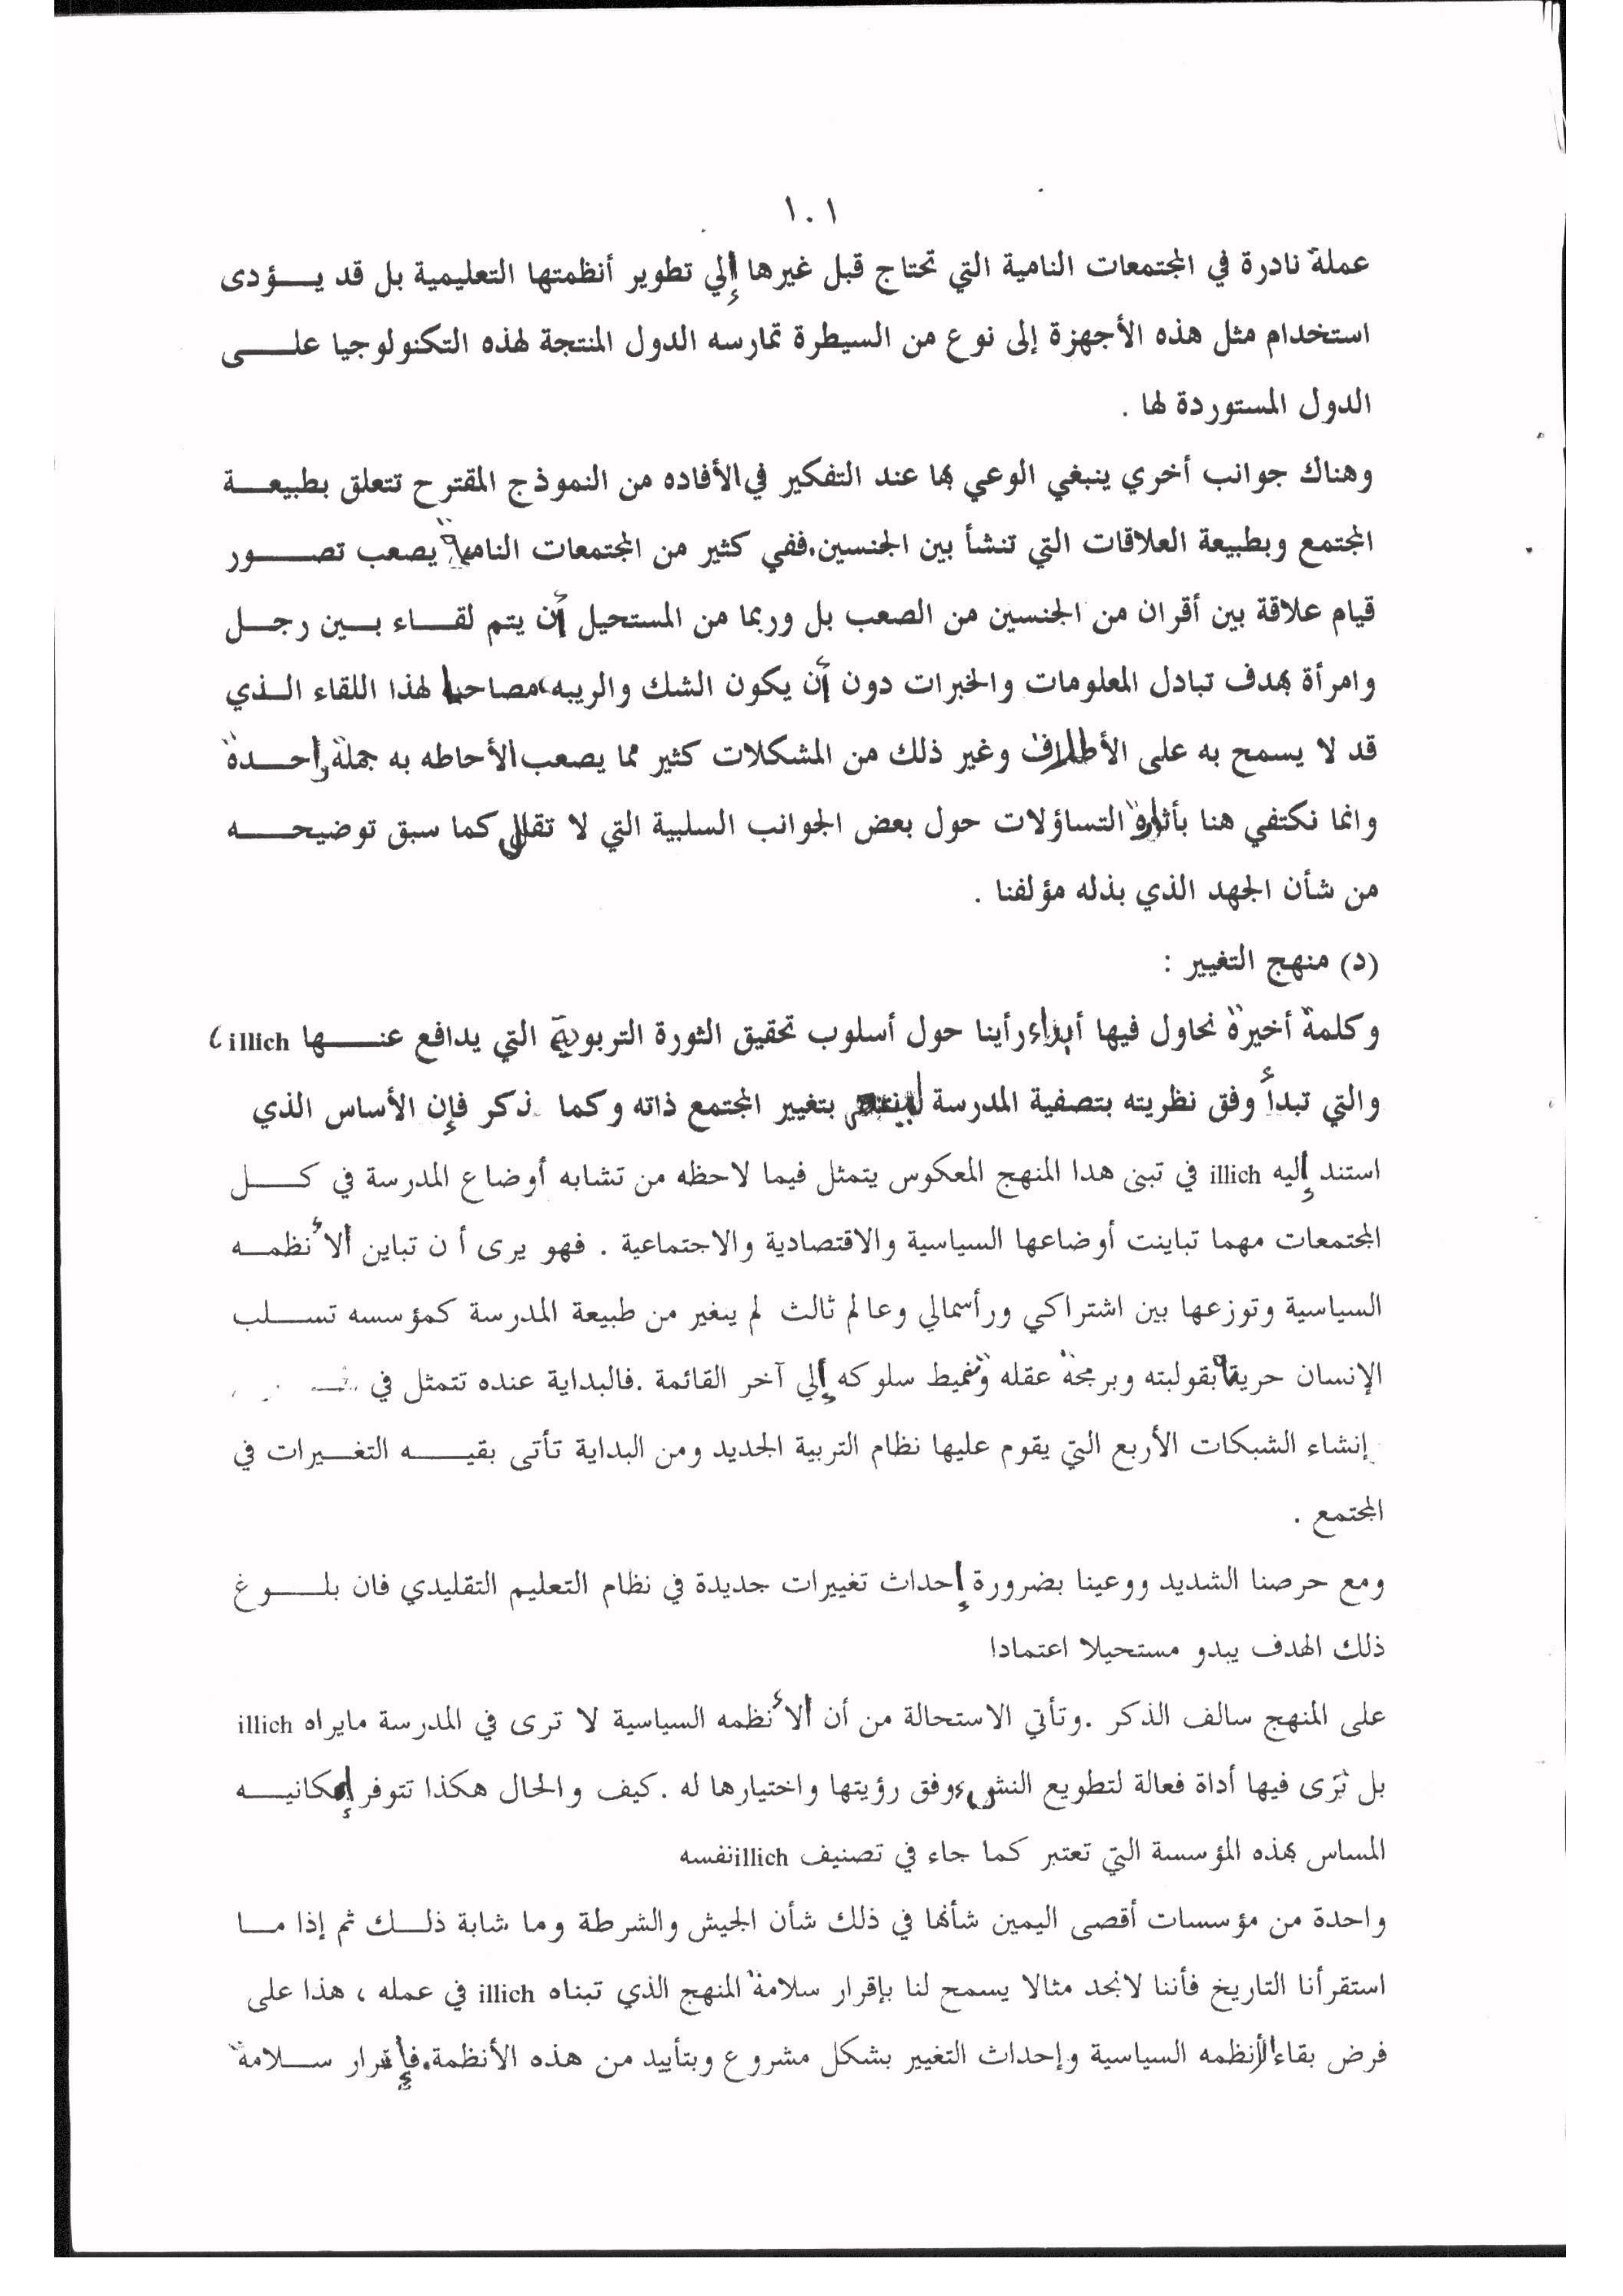 ١٠١
عملة نادرة في المجتمعات النامية التي تحتاج قبل غيرها إلي تطوير أنظمتها التعليمية بل قد يـــؤدى
استخدام مثل هذه الأجهزة إلى نوع من السيطرة تمارسه الدول المنتجة لهذه التكنولوجيا علـــى
الدول المستوردة لها .
وهناك جوانب أخري ينبغي الوعي بها عند التفكير في الأفاده من النموذج المقترح تتعلق بطبيعـــة
المجتمع وبطبيعة العلاقات التي تنشأ بين الجنسين. ففي كثير من المجتمعات النامية يصعب تصـــور
قيام علاقة بين أقران من الجنسين من الصعب بل وربما من المستحيل أن يتم لقـــاء بـــين رجـــل
وامرأة بهدف تبادل المعلومات والخبرات دون أن يكون الشك والريبه مصاحبا لهذا اللقاء الـــذي
قد لا يسمح به على الأطلاق وغير ذلك من المشكلات كثير مما يصعب الأحاطه به جملة واحـــدة
وانما نكتفي هنا بأثارة التساؤلات حول بعض الجوانب السلبية التي لا تقلل كما سبق توضيحـــه
من شأن الجهد الذي بذله مؤلفنا .
(د) منهج التغيير :
وكلمة أخيرة نحاول فيها أبداء رأينا حول أسلوب تحقيق الثورة التربوية التي يدافع عنـــها illich ،
والتي تبدأ وفق نظريته بتصفية المدرسة بتغيير المجتمع ذاته وكما ذكر فإن الأساس الذي
استند إليه illich في تبنى هدا المنهج المعكوس يتمثل فيما لاحظه من تشابه أوضاع المدرسة في كـــل
المجتمعات مهما تباينت أوضاعها السياسية والاقتصادية والاجتماعية . فهو يرى أ ن تباين الأنظمـــه
السياسية وتوزعها بين اشتراكي ورأسمالي وعالم ثالث لم يغير من طبيعة المدرسة كمؤسسه تســـلب
الإنسان حريته بقولبته وبرمجة عقله وتنميط سلوكه إلي آخر القائمة .فالبداية عنده تتمثل في
إنشاء الشبكات الأربع التي يقوم عليها نظام التربية الجديد ومن البداية تأتى بقيـــه التغـــيرات في
المجتمع .
ومع حرصنا الشديد ووعينا بضرورة إحداث تغييرات جديدة في نظام التعليم التقليدي فان بلـــوغ
ذلك الهدف يبدو مستحيلا اعتمادا
على المنهج سالف الذكر .وتأتي الاستحالة من أن الأنظمه السياسية لا ترى في المدرسة مايراه illich
بل ترى فيها أداة فعالة لتطويع النشء وفق رؤيتها واختيارها له .كيف والحال هكذا تتوفر إمكانيـــه
المساس بهذه المؤسسة التي تعتبر كما جاء في تصنيف illichنفسه
واحدة من مؤسسات أقصى اليمين شأنها في ذلك شأن الجيش والشرطة وما شابة ذلـــك ثم إذا مـــا
استقرأنا التاريخ فأننا لانجد مثالا يسمح لنا بإقرار سلامة المنهج الذي تبناه illich في عمله ، هذا على
فرض بقاء الأنظمه السياسية وإحداث التغيير بشكل مشروع وبتأييد من هذه الأنظمة. فإقرار ســـلامة